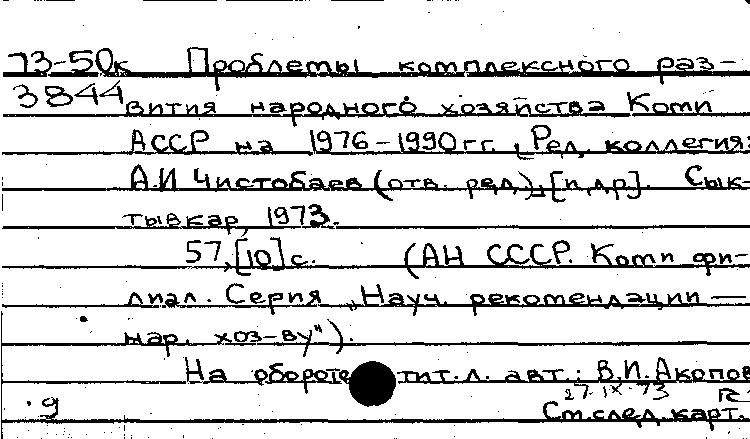 73-50к Проблемы комплексного раз-
3844 вития народного хозяйства Коми
АССР на 1976-1990 гг. [Ред. коллегия:
А.И Чистобаев (отв. ред.), [и др]. Сык-
тывкар, 1973.
57, [10] с. (АН СССР. Коми фи-
лиал. Серия „Науч. рекомендации —
нар. хоз-ву").
На обороте тит. л. авт.: В.И. Акопов
27.IX.73
·9 См. след. карт.